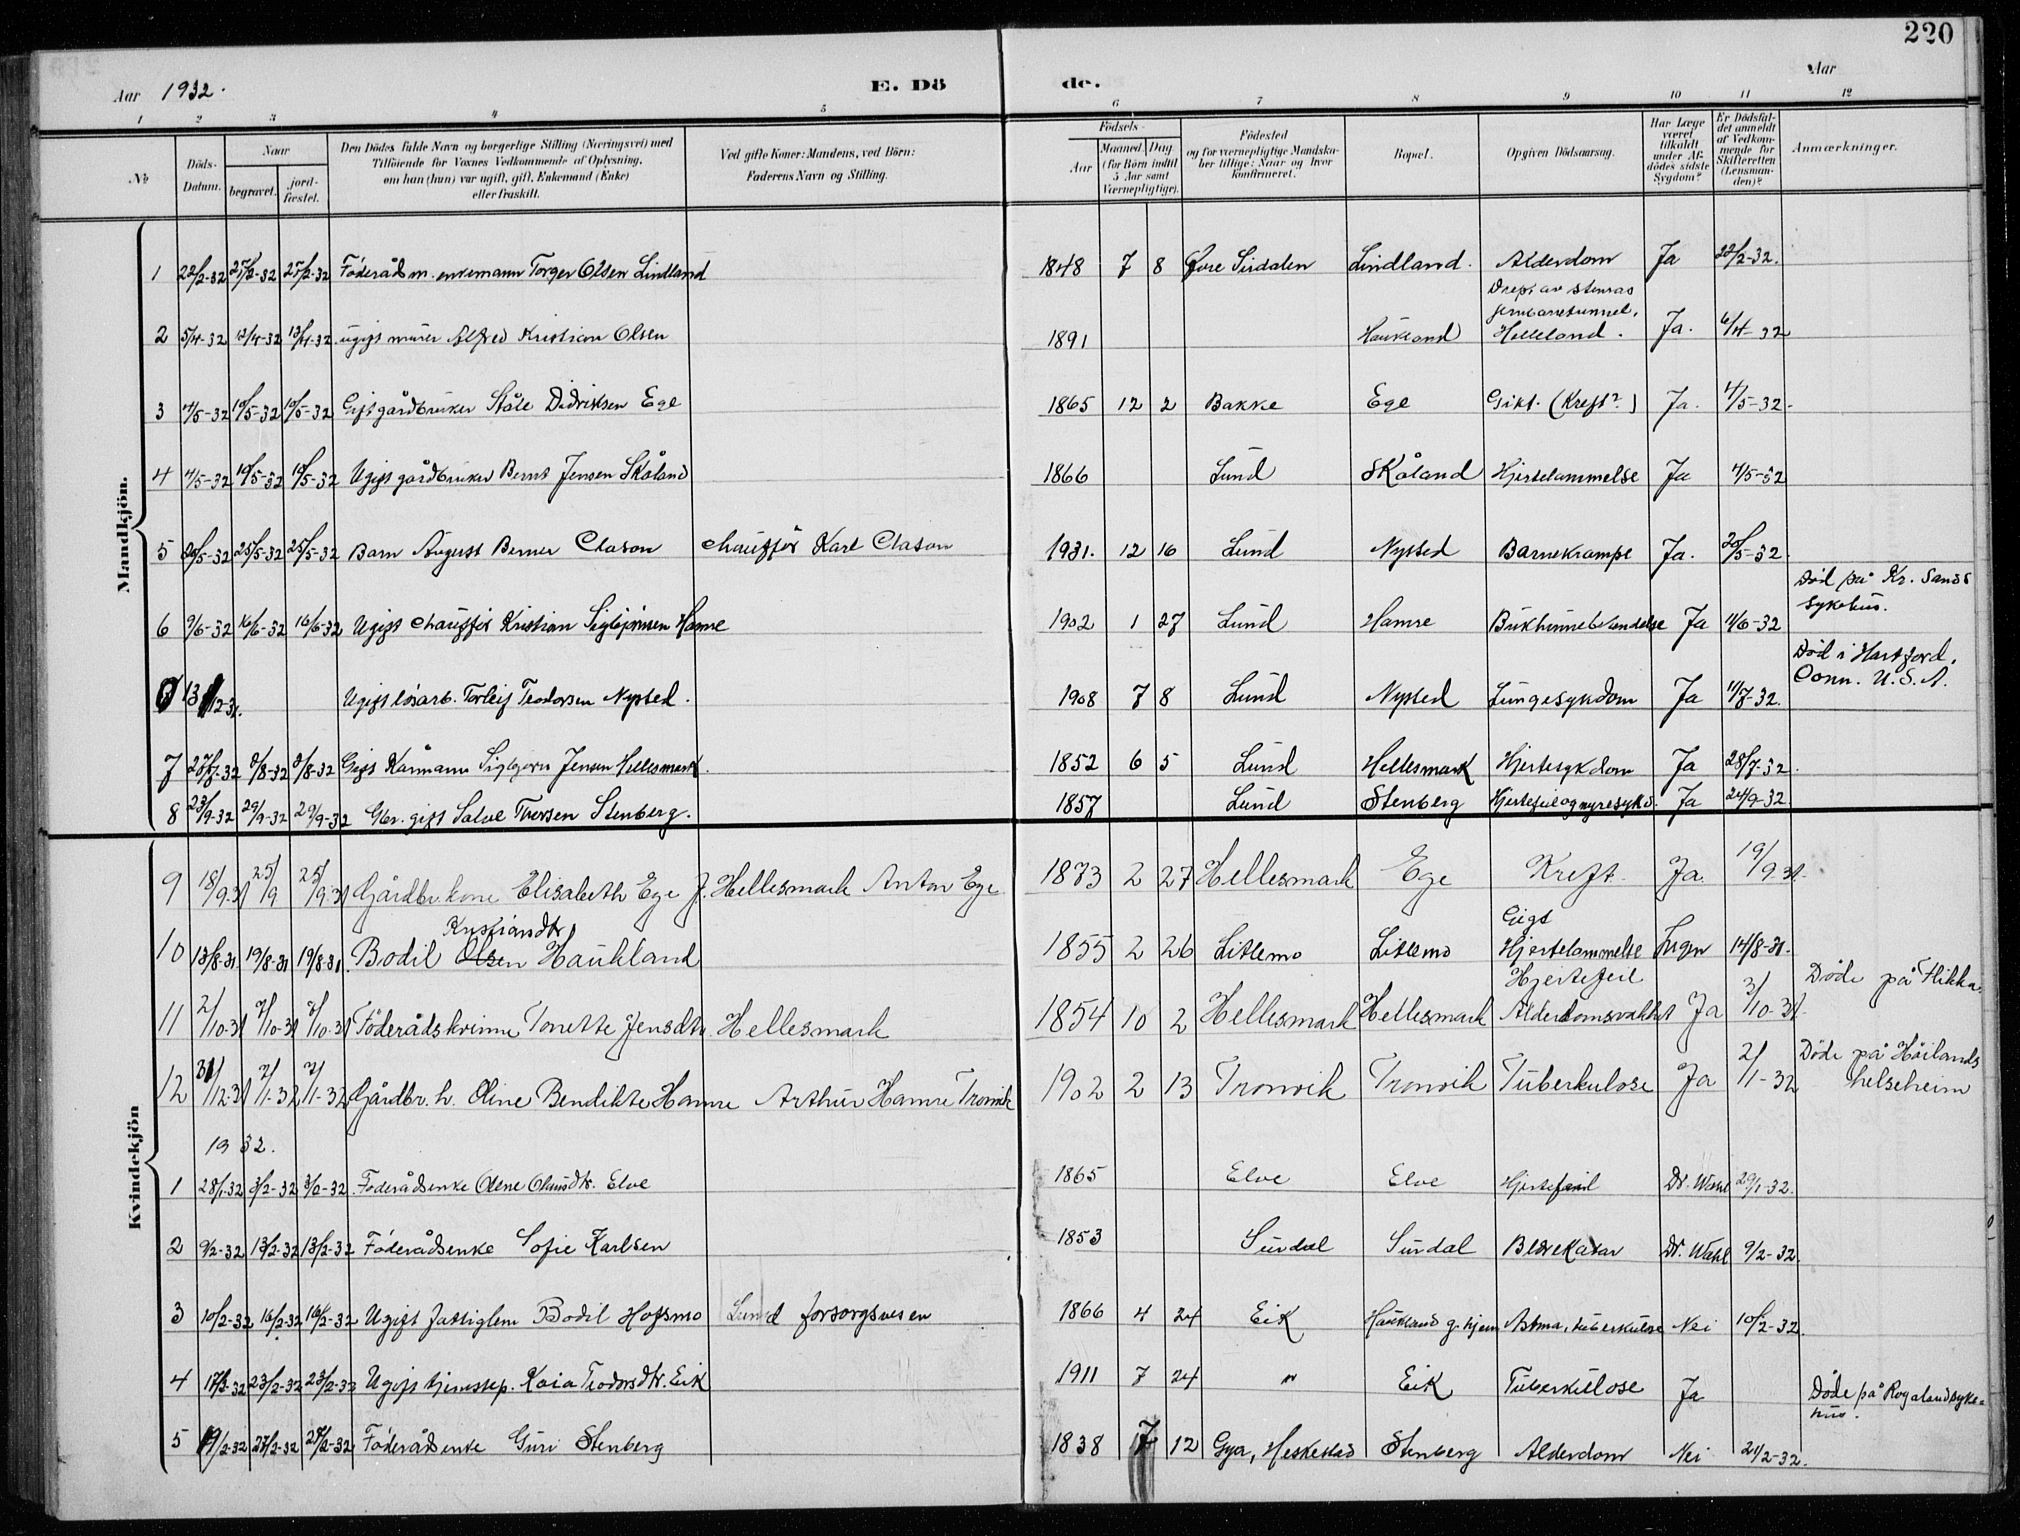 220
Aar 1932. E. Dö de. Aar
1 2 3 4 5 6 7 8 9 10 11 12
№ Döds-Datum. Naar begravet. jord-fæstet. Den Dödes fulde Navn og borgerlige Stilling (Næringsvei) med Tilföiende for Voxnes Vedkommende af Oplysning, om han (hun) var ugift, gift, Enkemand (Enke) eller fraskilt. Ved gifte Koner: Mandens, ved Börn: Faderens Navn og Stilling. Födsels- Aar Maaned. Dag. (for Börn indtil 5 Aar samt Værnepligtige). Födested og for værnepligtige Mandskaber tillige: Naar og hvor Konfirmeret. Bopæl. Opgiven Dödsaarsag. Har Læge været tilkaldt under Afdödes sidste Sygdom? Er Dödsfaldet anmeldt af Vedkommende for Skifteretten (Lensmanden)? Anmærkninger.
Mandkjön.
1 22/2-32 25/2-32 25/2-32 Föderåd m. enkemann Torger Olsen Lindland 1848 7 8 Øvre Sirdalen Lindland. Alderdom Ja 22/2-32.
2 5/4-32 13/4-32 13/4-32 ugift murer Alfred Kristian Olsen 1891 Haukland Drept av stenras jernbanetunnel, Helleland. Ja. 6/4-32
3 4/5-32 10/5-32 10/5-32 Gift gårdbruker Ståle Didriksen Ege 1865 12 2 Bakke Ege Gikt. (Kreft?) Ja. 4/5-32-
4 4/5-32 10/5-32 10/5-32 Ugift gårdbruker Bernt Jensen Skåland 1866 Lund Skåland Hjertelammelse Ja 4/5-32
5 20/5-32 25/5-32 25/5-32 Barn August Berner Clason Chaufför Karl Clason 1931. 12 16 Lund Nysted Barnekrampe Ja. 20/5-32.
6 9/6-32 16/6-32 16/6-32 Ugift Chaufför Kristian Sigbjörnsen Hamre 1902 1 27 Lund Hamre Bukhinnebetendelse Ja 11/6-32 Död på Kr. sands sykehus.
13/12-31. Ugift lösarb. Torleif Teodorsen Nysted. 1908 7 8 Lund Nysted Lungesykdom Ja 11/7-32. Död i Hartford, Conn. U.S.A.
7 27/7-32 3/8-32 3/8-32 Gift Kårmann Sigbjörn Jensen Hellesmark. 1852 6 5 Lund Hellesmark Hjertesykdom Ja 28/7-32.
8 23/9-32 29/9-32 29/9-32 Gbr. gift Salve Torsen Stenberg. 1857 Lund Stenberg Hjertefeil og nyresykd. Ja 24/9-32
Kvindekjön
9 18/9.31 25/9 25/9.31 Gårdbr. kone Elisabeth Ege f. Hellesmark Anton Ege 1873 2 27 Hellesmark Ege Kreft Ja. 19/9 31.
10 13/8-31 19/8-31 19/8-31. Bodil Olsen Kristiansdtr Haukland 1855 2 26 Litlemo Litlemo Gigt Hjertelammelse Ingen 14/8-31.
11 2/10-31 7/10-31 7/10-31 Föderådskvinne Tonette Jensdtr. Hellesmark 1854 10 2 Hellesmark Hellesmark Hjertefeil Alderdomsvakhet Ja 3/10-31. Döde på Flikka.
12 31/12-31 7/1-32 7/1-32 Gårdbr. h. Oline Bendikte Hamre Arthur Hamre Tronvik 1902 2 13 Tronvik Tronvik Tuberkulose Ja 2/1-32 Döde på Håilands helseheim
1932.
1 28/1-32 3/2-32 3/2-32. Föderådsenke Olene Olausdtr. Elve 1865 Elve Elve Hjertefeil Dr. Wahl 29/1-32.
2 9/2-32 13/2-32 13/2-32 Föderådsenke Sofie Karlsen 1853 Surdal Surdal Blærekatar Dr. Wahl 9/2-32.
3 10/2-32 16/2-32 16/2-32 Ugift fattiglem Bodil Hofsmo Lund forsorgsvesen 1866 4 24 Eik Haukland g. hjem Astma, tuberkulose Nei 10/2-32.
4 17/2-32 23/2-32 23/2-32 Ugift hjemssep. Kaia Teodorsdtr. Eik 1911 7 24 " Eik Tuberkulose Ja Döde på Rogalandsyke=hus.
5 19/2-32 27/2-32 27/2-32 Föderådsenke Guri Stenberg 1838 7 12 Gya, Heskestad Stenberg Alderdom Nei 21/2-32.